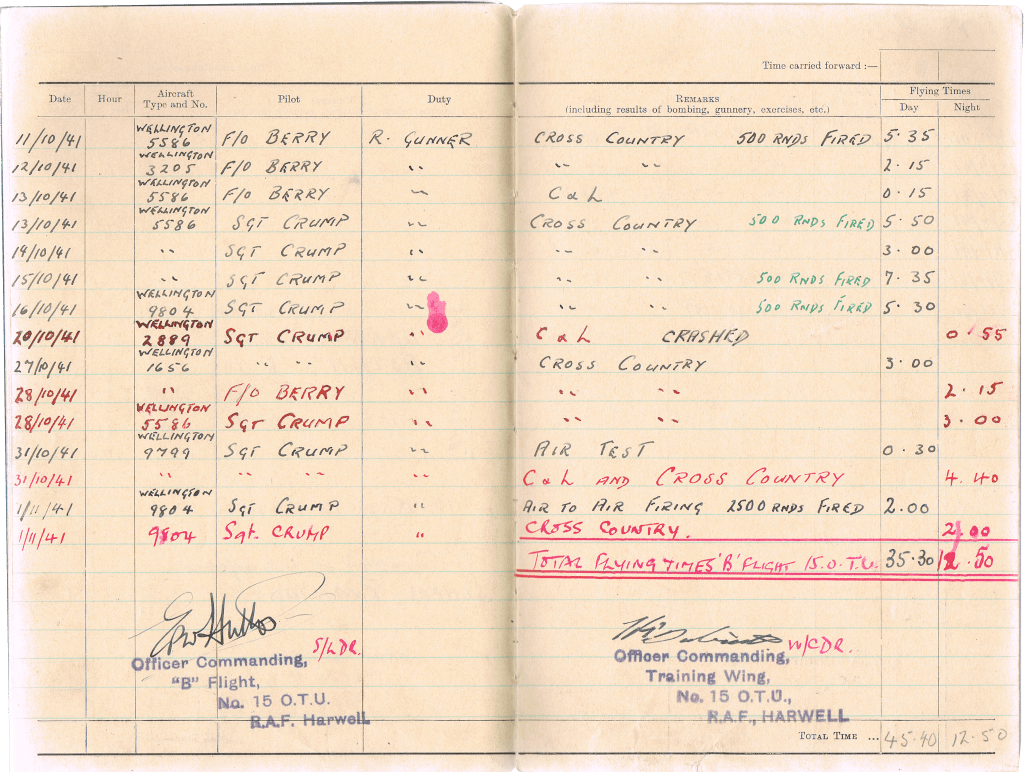 Time carried forward :—
Date Hour Aircraft Type and No. Pilot Duty REMARKS (including results of bombing, gunnery, exercises, etc.) Flying Times Day Night
11/10/41 WELLINGTON 5586 F/O BERRY R. GUNNER CROSS COUNTRY 500 RNDS FIRED 5.35
12/10/41 WELLINGTON 3205 F/O BERRY " " " 2.15
13/10/41 WELLINGTON 5586 F/O BERRY " C & L 0.15
13/10/41 WELLINGTON 5586 SGT CRUMP " CROSS COUNTRY 500 RNDS FIRED 5.50
14/10/41 " SGT CRUMP " " " 3.00
15/10/41 " SGT CRUMP " " " 500 RNDS FIRED 7.35
16/10/41 WELLINGTON 9804 SGT CRUMP " " " 500 RNDS FIRED 5.30
20/10/41 WELLINGTON 2889 SGT CRUMP " C & L CRASHED 0.55
27/10/41 WELLINGTON 1656 " " " " CROSS COUNTRY 3.00
28/10/41 " F/O BERRY " " " 2.15
28/10/41 WELLINGTON 5586 SGT CRUMP " " " 3.00
31/10/41 WELLINGTON 9799 SGT CRUMP " AIR TEST 0.30
31/10/41 " " " " " C & L AND CROSS COUNTRY 4.40
1/11/41 WELLINGTON 9804 SGT CRUMP " AIR TO AIR FIRING 2500 RNDS FIRED 2.00
1/11/41 9804 Sgt. CRUMP " CROSS COUNTRY. 2.00
TOTAL FLYING TIMES 'B' FLIGHT 15.O.T.U. 35.30 12.50
S/LDR.
Officer Commanding,
"B" Flight,
No. 15 O.T.U.
R.A.F. Harwell
W/CDR.
Officer Commanding,
Training Wing,
No. 15 O.T.U.,
R.A.F., HARWELL
TOTAL TIME ... 45.40 12.50